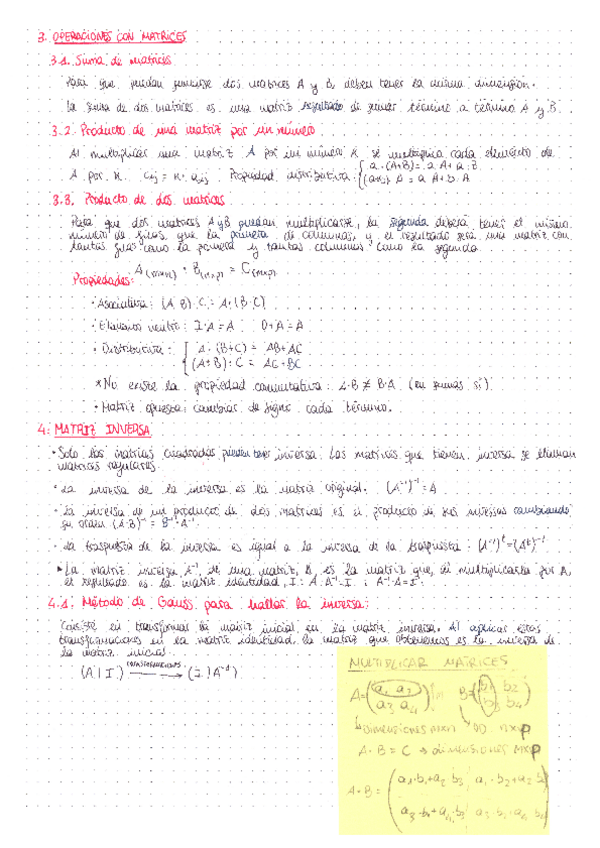 3. OPERACIONES CON MATRICES
3.1. Suma de matrices
Para que puedan sumarse dos matrices A y B, deben tener la misma dimensión.
La suma de dos matrices es una matriz resultado de sumar término a término A y B.
3.2. Producto de una matriz por un número
Al multiplicar una matriz A por un número K se multiplica cada elemento de
A por K. Cij = K · aij Propiedad distributiva: { a · (A+B) = a · A + a · B
(a+b) · A = a · A + b · A
3.3. Producto de dos matrices
Para que dos matrices A y B puedan multiplicarse, la segunda deberá tener el mismo
número de filas que la primera de columnas, y el resultado será una matriz con
tantas filas como la primera y tantas columnas como la segunda
A(mxn) · B(nxp) = C(mxp)
Propiedades:
· Asociativa: (A·B)·C = A·(B·C)
· Elemento neutro: I·A = A 0+A = A
· Distributiva: { A·(B+C) = AB+AC
(A+B)·C = AC+BC
* No existe la propiedad conmutativa: A·B ≠ B·A (en sumas sí)
· Matriz opuesta: cambiar de signo cada término.
4. MATRIZ INVERSA
· Solo las matrices cuadradas pueden tener inversa. Las matrices que tienen inversa se llaman
matrices regulares.
· La inversa de la inversa es la matriz original. (A⁻¹)⁻¹ = A
· La inversa de un producto de dos matrices es el producto de sus inversas cambiando
su orden (A·B)⁻¹ = B⁻¹·A⁻¹
· La traspuesta de la inversa es igual a la inversa de la traspuesta: (A⁻¹)ᵗ = (Aᵗ)⁻¹
▸ La matriz inversa A⁻¹, de una matriz, A, es la matriz que, al multiplicarla por A,
el resultado es la matriz identidad, I: A·A⁻¹ = I ; A⁻¹·A = I
4.1. Método de Gauss para hallar la inversa:
Consiste en transformar la matriz inicial en la matriz inversa. Al aplicar estas
transformaciones en la matriz identidad, la matriz que obtenemos es la inversa de
la matriz inicial.
(A | I) transformaciones → (I | A⁻¹)
MULTIPLICAR MATRICES
A = (a₁ a₂ B = (b₁ b₂
a₃ a₄) b₃ b₄)
↳ Dimensiones mxn nxp
A · B = C → dimensiones mxp
A · B = (a₁·b₁+a₂·b₃ a₁·b₂+a₂·b₄
a₃·b₁+a₄·b₃ a₃·b₂+a₄·b₄)